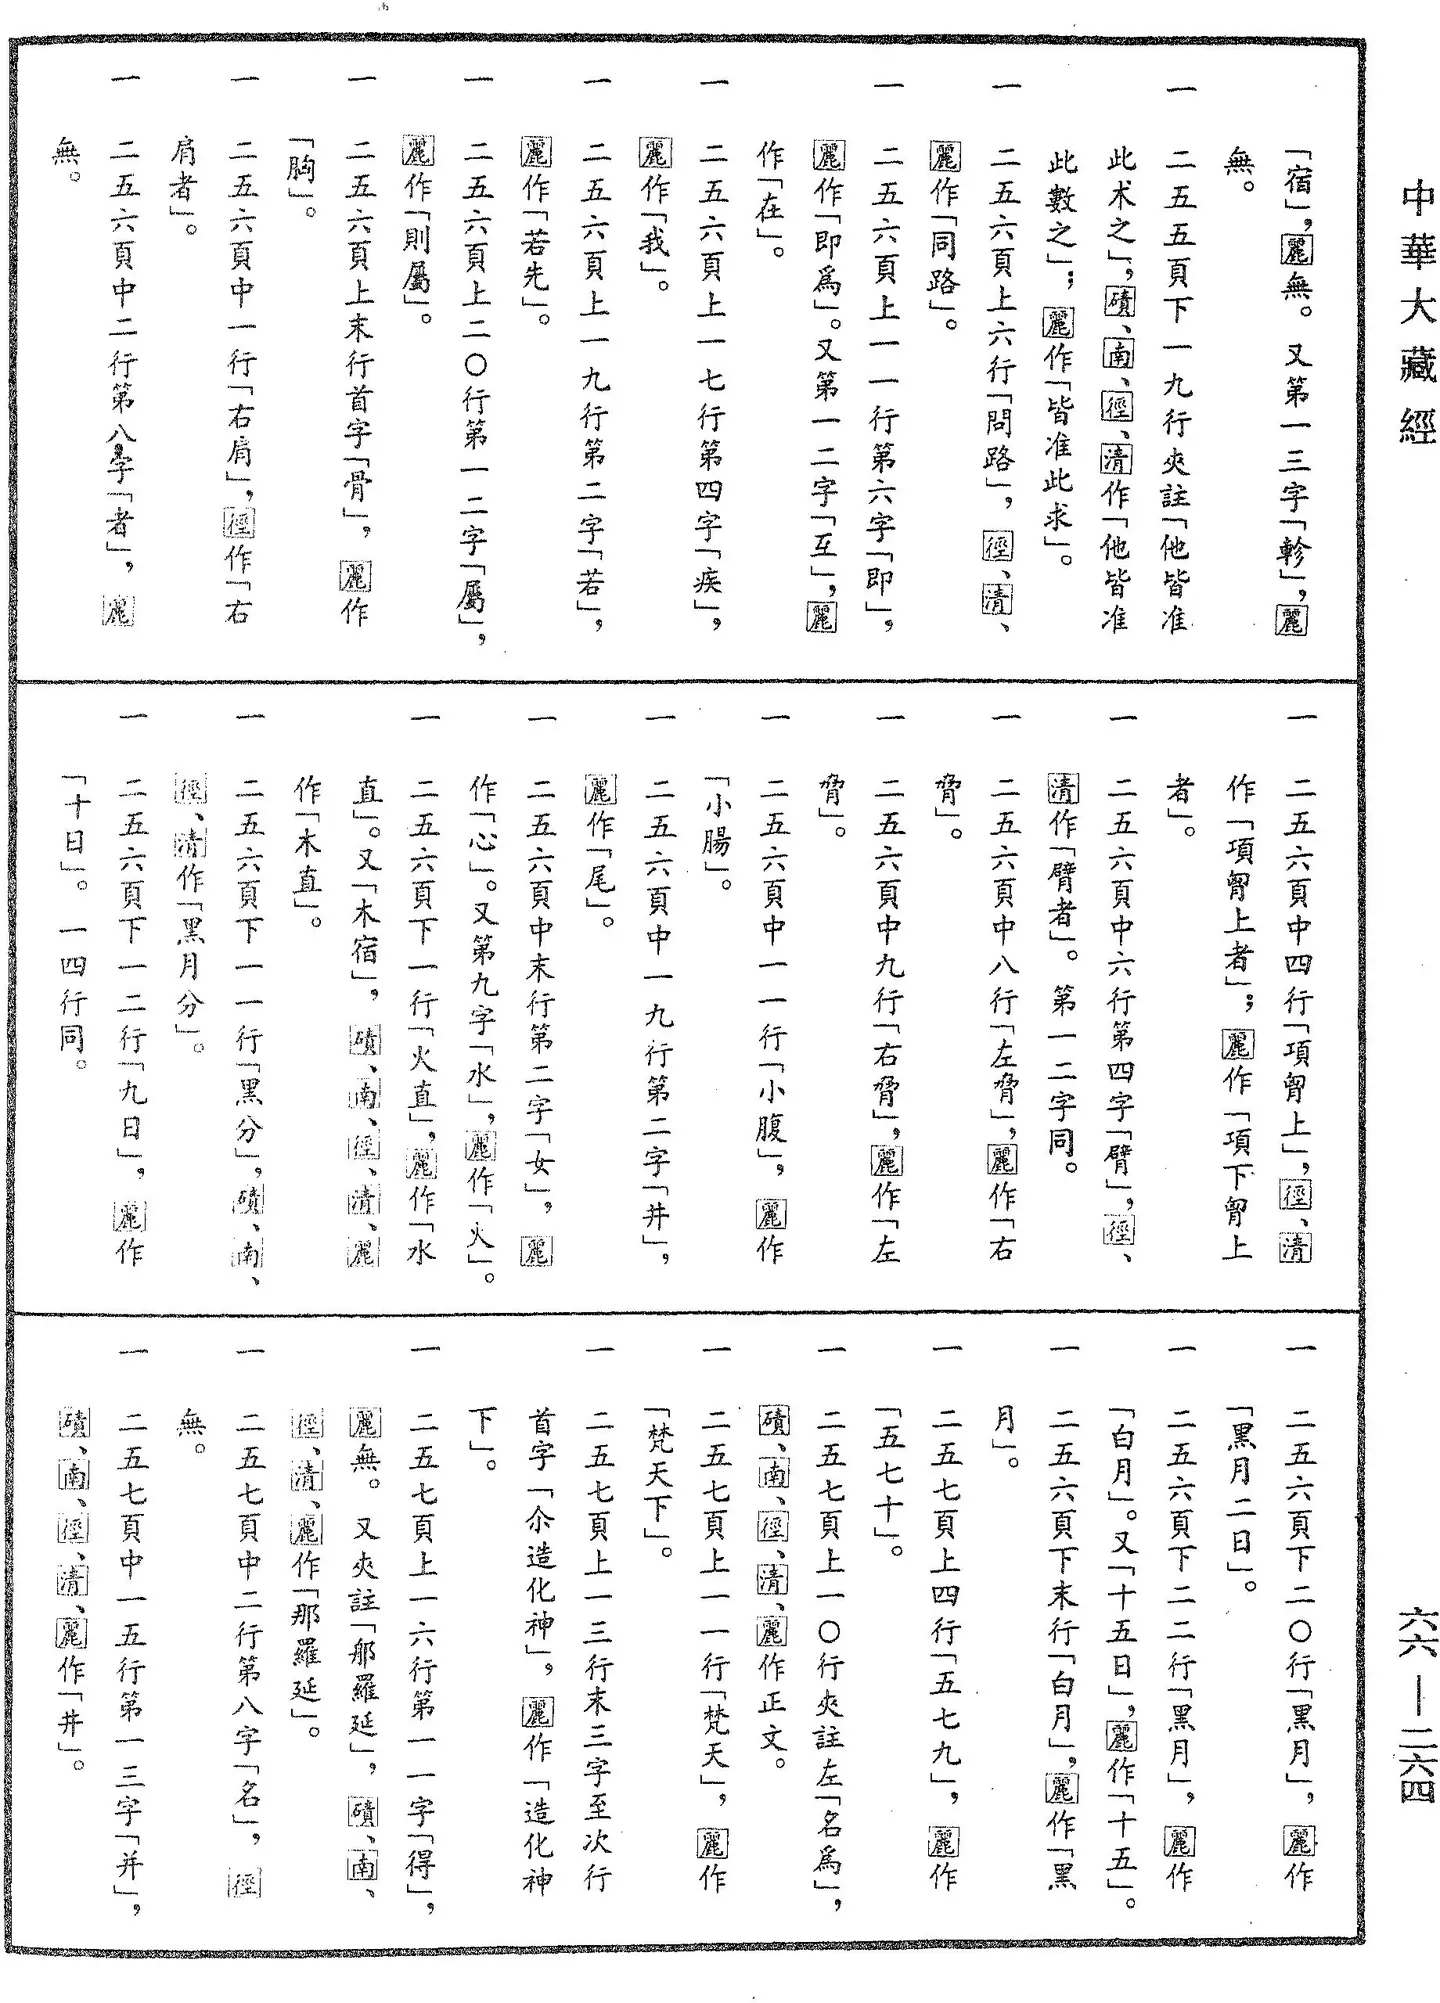 中華大藏經
「宿」，麗無。又第一三字「軫」，麗
無。
一　二五五頁下一九行夾註「他皆准
此术之」，磧、南、徑、清作「他皆准
此數之」；麗作「皆准此求」。
一　二五六頁上六行「問路」，徑、清、
麗作「同路」。
一　二五六頁上一一行第六字「即」，
麗作「即爲」。又第一二字「互」，麗
作「在」。
一　二五六頁上一七行第四字「疾」，
麗作「我」。
一　二五六頁上一九行第二字「若」，
麗作「若先」。
一　二五六頁上二〇行第一二字「屬」，
麗作「則屬」。
一　二五六頁上末行首字「骨」，麗作
「胸」。
一　二五六頁中一行「右肩」，徑作「右
肩者」。
一　二五六頁中二行第八字「者」，麗
無。
一　二五六頁中四行「項胷上」，徑、清
作「項胷上者」；麗作「項下胷上
者」。
一　二五六頁中六行第四字「臂」，徑、
清作「臂者」。第一二字同。
一　二五六頁中八行「左脅」，麗作「右
脅」。
一　二五六頁中九行「右脅」，麗作「左
脅」。
一　二五六頁中一一行「小腹」，麗作
「小腸」。
一　二五六頁中一九行第二字「井」，
麗作「尾」。
一　二五六頁中末行第二字「女」，麗
作「心」。又第九字「水」，麗作「火」。
一　二五六頁下一行「火直」，麗作「水
直」。又「木宿」，磧、南、徑、清、麗
作「木直」。
一　二五六頁下一一行「黑分」，磧、南、
徑、清作「黑月分」。
一　二五六頁下一二行「九日」，麗作
「十日」。一四行同。
一　二五六頁下二〇行「黑月」，麗作
「黑月二日」。
一　二五六頁下二二行「黑月」，麗作
「白月」。又「十五日」，麗作「十五」。
一　二五六頁下末行「白月」，麗作「黑
月」。
一　二五七頁上四行「五七九」，麗作
「五七十」。
一　二五七頁上一〇行夾註左「名爲」，
磧、南、徑、清、麗作正文。
一　二五七頁上一一行「梵天」，麗作
「梵天下」。
一　二五七頁上一三行末三字至次行
首字「尒造化神」，麗作「造化神
下」。
一　二五七頁上一六行第一一字「得」，
麗無。又夾註「𨙻羅延」，磧、南、
徑、清、麗作「那羅延」。
一　二五七頁中二行第八字「名」，徑
無。
一　二五七頁中一五行第一三字「并」，
磧、南、徑、清、麗作「井」。
六六—二六四